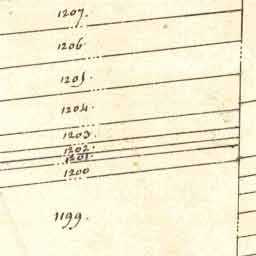 1207.
1206.
1205.
1204.
1203.
1202.
1201.
1200
1199.